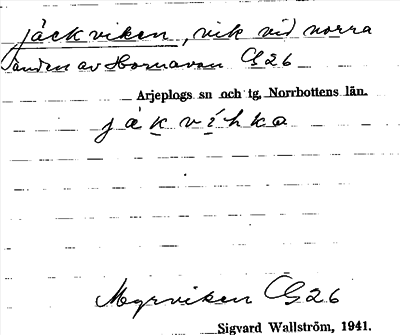 jäckviken, vik vid norra
änden av Hornavan G26
Arjeplogs sn och tg, Norrbottens län.
jäkvíhka
Myrviken G26
Sigvard Wallström, 1941.